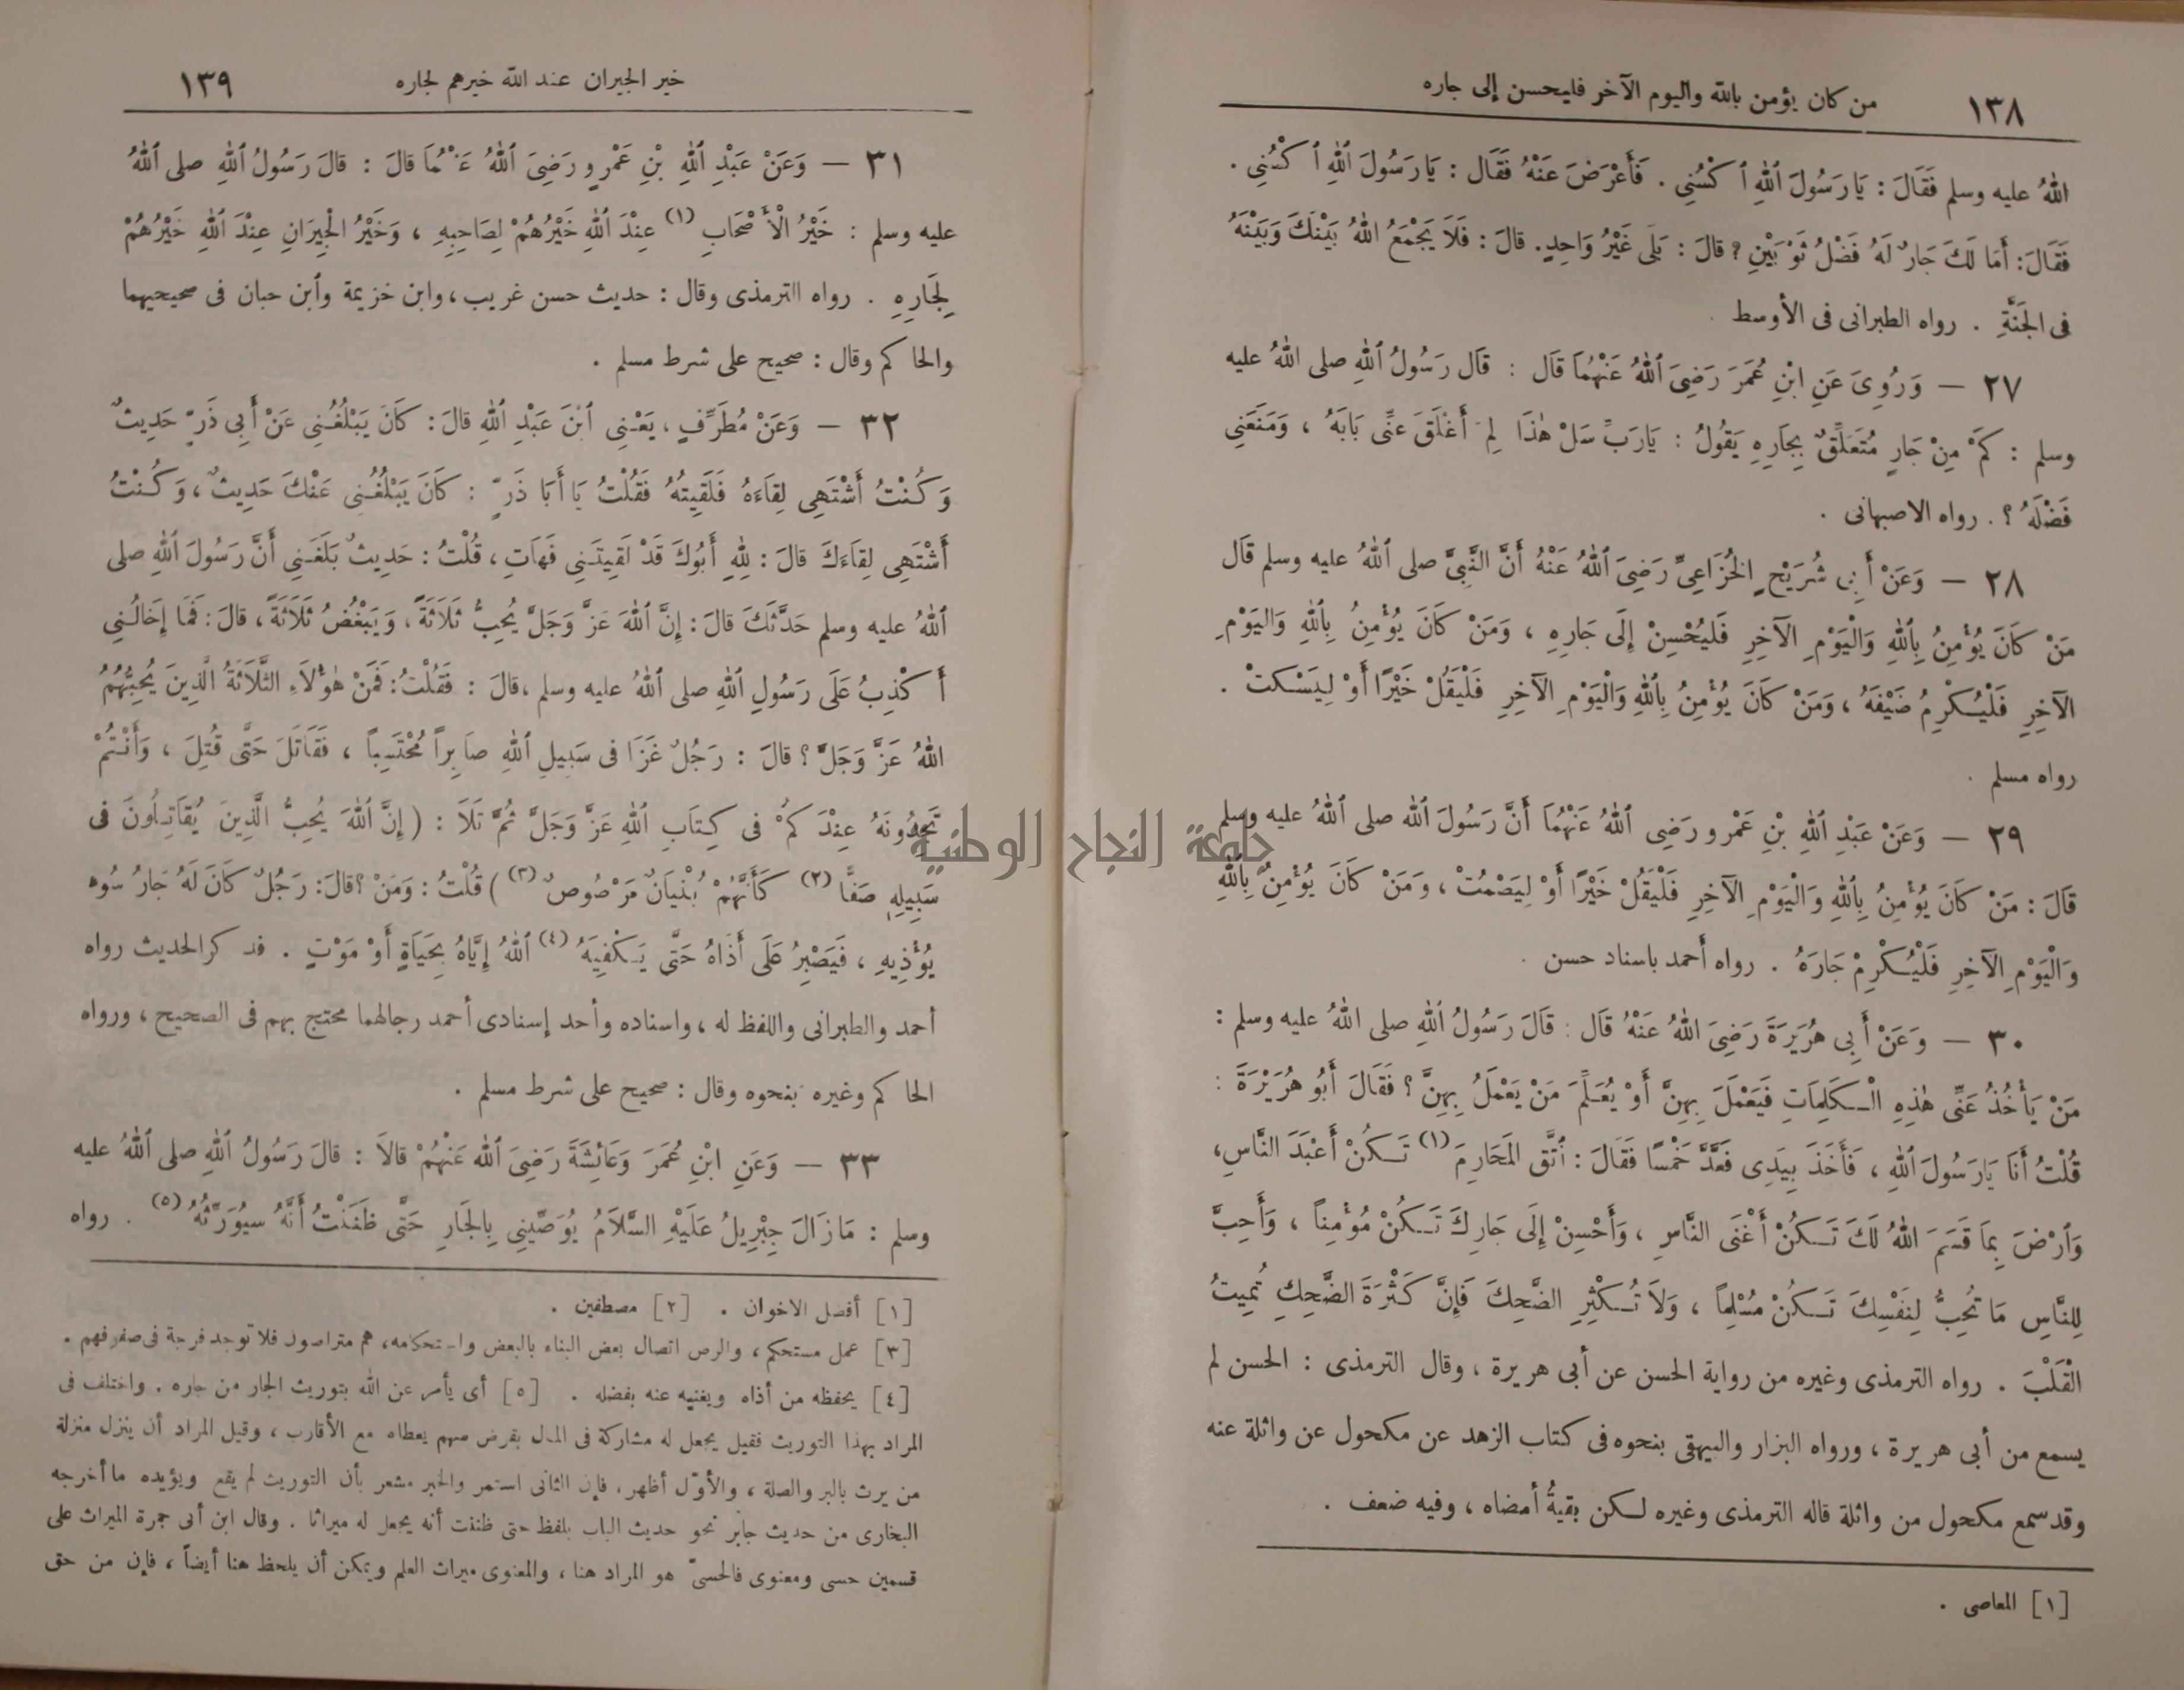 ١٣٨ من كان يؤمن بالله واليوم الآخر فليحسن إلى جاره
اللهُ عليه وسلم فَقَالَ : يَارَسُولَ اللهِ اُكْسُنِى . فَأَعْرَضَ عَنْهُ فَقَال : يَارَسُولَ اللهِ اُكْسُنِى .
فَقَالَ: أَمَا لَكَ جَارٌ لَهُ فَضْلُ ثَوْبَيْنِ ؟ قالَ : بَلَى غَيْرُ وَاحِدٍ. قالَ : فَلَا يَجْمَعُ اللهُ بَيْنَكَ وَبَيْنَهُ
فى الجَنَّةِ . رواه الطبرانى فى الأوسط .
٢٧ — وَرُوِىَ عَنِ ابْنِ عُمَرَ رَضِىَ اللهُ عَنْهُمَا قَال : قَال رَسُولُ اللهِ صلى اللهُ عليه
وسلم : كَمْ مِنْ جَارٍ مُتَعَلِّقٌ بِجَارِهِ يَقُولُ : يَارَبِّ سَلْ هٰذَا لِمَ أَغْلَقَ عَنِّى بَابَهُ ، وَمَنَعَنِى
فَضْلَهُ ؟ . رواه الاصبهانى .
٢٨ — وَعَنْ أَبِى شُرَيْحٍ الخُزَاعِىِّ رَضِىَ اللهُ عَنْهُ أَنَّ النَّبِىَّ صلى اللهُ عليه وسلم قَال
مَنْ كَانَ يُؤْمِنُ بِاللهِ وَالْيَوْمِ الآخِرِ فَليُحْسِنْ إِلَى جَارِهِ ، وَمَنْ كَانَ يُؤْمِنُ بِاللهِ وَاليَوْمِ
الآخِرِ فَلْيُكْرِمُ ضَيْفَهُ ، وَمَنْ كَانَ يُؤْمِنُ بِاللهِ وَالْيَوْمِ الآخِرِ فَلْيَقُلْ خَيْرًا أَوْ لِيَسْكتْ .
رواه مسلم .
٢٩ — وَعَنْ عَبْدِ اللهِ بْنِ عَمْرٍو رَضِى اللهُ عَنْهُمَا أَنَّ رَسُولَ الله صلى اللهُ عليه وسلم
قَالَ : مَنْ كَانَ يُؤْمِنُ بِاللهِ وَالْيَوْمِ الآخِرِ فَلْيَقُلْ خَيْرًا أَوْ لِيَصْمُتْ ، وَمَنْ كَانَ يُؤْمِنُ بِاللهِ
وَالْيَوْمِ الآخِرِ فَلْيُكْرِمْ جَارَهُ . رواه أحمد باسناد حسن .
٣٠ — وَعَنْ أَبِى هُرَيْرَةَ رَضِىَ اللهُ عَنْهُ قَال : قَالَ رَسُولُ اللهِ صلى اللهُ عليه وسلم :
مَنْ يَأْخُذُ عَنِّى هٰذِهِ الْكَلِمَاتِ فَيَعْمَلَ بِهِنَّ أَوْ يُعَلِّمَ مَنْ يَعْمَلُ بِهِنَّ ؟ فَقَالَ أَبُو هُرَيْرَةَ :
قُلْتُ أَنَا يَارَسُولَ اللهِ ، فَأَخَذَ بِيَدِى فَعَدَّ خَمْسًا فَقَالَ : اتَّقِ المَحَارِمَ (١) تَكُنْ أَعْبَدَ النَّاسِ،
وَارْضَ بِمَا قَسَمَ اللهُ لَكَ تَكُنْ أَغْنَى النَّاسِ ، وَأَحْسِنْ إِلَى جَارِكَ تَكُنْ مُؤْمِناً ، وَأَحِبَّ
لِلنَّاسِ مَا تُحِبُّ لِنَفْسِكَ تَكُنْ مُسْلِماً ، وَلَا تُكْثِرِ الضَّحِكَ فَإِنَّ كَثْرَةَ الضَّحِكِ تُمِيتُ
الْقَلْبَ . رواه الترمذى وغيره من رواية الحسن عن أبى هريرة ، وقال الترمذى : الحسن لم
يسمع من أبى هريرة ، ورواه البزار والبيهقى بنحوه فى كتاب الزهد عن مكحول عن واثلة عنه
وقد سمع مكحول من واثلة قاله الترمذى وغيره لكن بقيةُ أمضاه ، وفيه ضعف .
[١] المعاصى .
خير الجيران عند الله خيرهم لجاره ١٣٩
٣١ — وَعَنْ عَبْدِ اللهِ بْنِ عَمْرٍو رَضِىَ اللهُ عَنْهُمَا قالَ : قالَ رَسُولُ اللهِ صلى اللهُ
عليه وسلم : خَيْرُ الْأَصْحَابِ (١) عِنْدَ اللهِ خَيْرُهُمْ لِصَاحِبِهِ ، وَخَيْرُ الْجِيرَانِ عِنْدَ اللهِ خَيْرُهُمْ
لِجَارِهِ . رواه الترمذى وقال : حديث حسن غريب ، وابن خزيمة وأبن حبان فى صحيحيهما
والحاكم وقال : صحيح على شرط مسلم .
٣٢ — وَعَنْ مُطَرِّفٍ ، يَعْنِى ابْنَ عَبْدِ اللهِ قالَ : كَانَ يَبْلُغُنِى عَنْ أَبِى ذَرٍّ حَدِيثٌ
وَكُنْتُ أَشْتَهِى لِقَاءَهُ فَلَقِيتُهُ فَقُلْتُ يَا أَبَا ذَرٍّ : كَانَ يَبْلُغُنِى عَنْكَ حَدِيثٌ ، وَكُنْتُ
أَشْتَهِى لِقَاءَكَ قالَ : لِلهِ أَبُوكَ قَدْ لَقِيتَنِى فَهَاتِ ، قُلْتُ : حَدِيثٌ بَلَغَنِى أَنَّ رَسُولَ اللهِ صلى
اللهُ عليه وسلم حَدَّثَكَ قالَ : إِنَّ اللهَ عَزَّ وَجَلَّ يُحِبُّ ثَلَاثَةً ، وَيَبْغُضُ ثَلَاثَةً ، قالَ : فَمَا إِخَالُنِى
أَكْذِبُ عَلَى رَسُولِ اللهِ صلى اللهُ عليه وسلم ،قالَ : فَقُلْتُ : فَمَنْ هٰؤُلَاءِ الثَّلَاثَةُ الَّذِينَ يُحِبُّهُمُ
اللهُ عَزَّ وَجَلَّ ؟ قالَ : رَجُلٌ غَزَا فى سَبِيلِ اللهِ صَابِراً مُحْتَسِباً ، فَقَاتَلَ حَتَّى قُتِلَ ، وَأَنْتُمْ
تَجِدُونَهُ عِنْدَكُمْ فى كِتَابِ اللهِ عَزَّ وَجَلَّ ثُمَّ تَلَا : ( إِنَّ اللهَ يُحِبُّ الَّذِينَ يُقَاتِلُونَ فى
سَبِيلِهِ صَفًّا (٢) كَأَنَّهُمْ بُنْيَانٌ مَرْصُوصٌ (٣) ) قُلْتُ : وَمَنْ ؟ قالَ : رَجُلٌ كَانَ لَهُ جَارُ سُوءٍ
يُؤْذِيهِ ، فَيَصْبِرُ عَلَى أَذَاهُ حَتَّى يَكْفِيَهُ (٤) اللهُ إِيَّاهُ بِحَيَاةٍ أَوْ مَوْتٍ . فذكر الحديث رواه
أحمد والطبرانى واللفظ له ، واسناده وأحد إسنادى أحمد رجالهما محتج بهم فى الصحيح ، ورواه
الحاكم وغيره بنحوه وقال : صحيح على شرط مسلم .
٣٣ — وَعَنِ ابْنِ عُمَرَ وَعَائِشَةَ رَضِىَ الله عَنْهُمْ قالَا : قالَ رَسُولُ اللهِ صلى اللهُ عليه
وسلم : مَازَالَ جِبْرِيلُ عَلَيْهِ السَّلَامُ يُوَصِّينِى بِالجَارِ حَتَّى ظَنَنْتُ أَنَّهُ سَيُوَرِّثُهُ (٥) . رواه
[١] أفضل الاخوان . [٢] مصطفين .
[٣] عمل مستحكم ، والرص اتصال بعض البناء بالبعض واستحكامه ، هم متراصون فلا توجد فرجة فى صفوفهم .
[٤] يحفظه من أذاه ويغنيه عنه بفضله . [٥] أى يأمر عن الله بتوريث الجار من جاره . واختلف فى
المراد بهذا التوريث فقيل يجعل له مشاركة فى المال بفرض سهم يعطاه مع الأقارب ، وقيل المراد أن ينزل منزلة
من يرث بالبر والصلة ، والأوّل أظهر ، فإن الثانى استمر والخبر مشعر بأن التوريث لم يقع ويؤيده ما أخرجه
البخارى من حديث جابر نحو حديث الباب بلفظ حتى ظننت أنه يجعل له ميراثا . وقال ابن أبى جمرة الميراث على
قسمين حسى ومعنوى فالحسىّ هو المراد هنا ، والمعنوى ميراث العلم ويمكن أن يلحظ هنا أيضاً ، فإن من حق
جامعة النجاح الوطنية